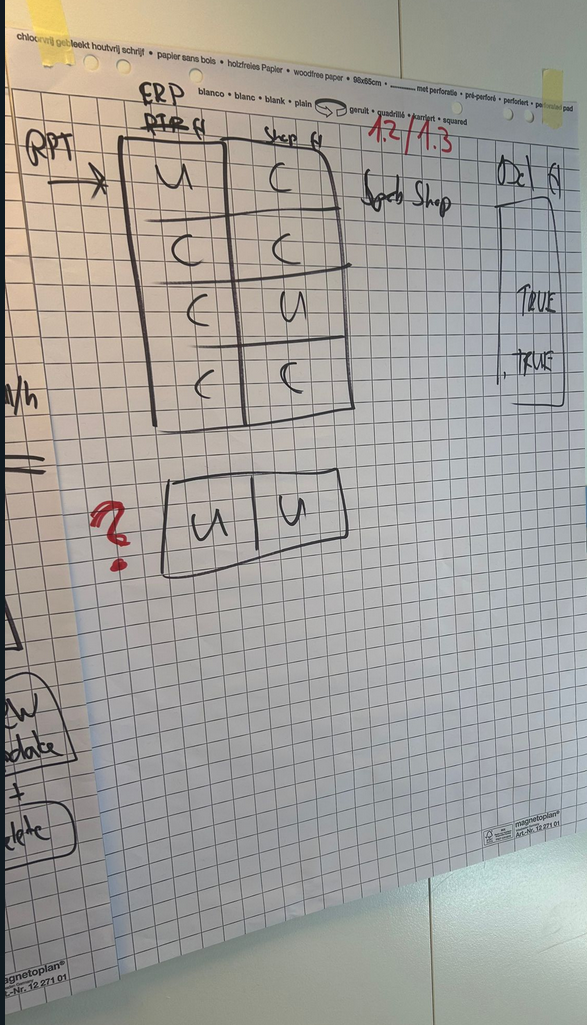 chloorvrij gebleekt houtvrij schrijf • papier sans bois • holzfreies Papier • woodfree paper • 98x65cm • met perforatie • pré-perforé • perforiert • pad
blanco • blanc • blank • plain geruit • quadrillé • karriert • squared
ERP
RPT
Shop
1.2/1.3
Shop
Del
U C
C C
C U
C C
TRUE
TRUE
/h
?
U U
EW
pdate
+
elete
magnetoplan®
Art.-Nr. 12 271 01
agnetoplan®
t.-Nr. 12 271 01